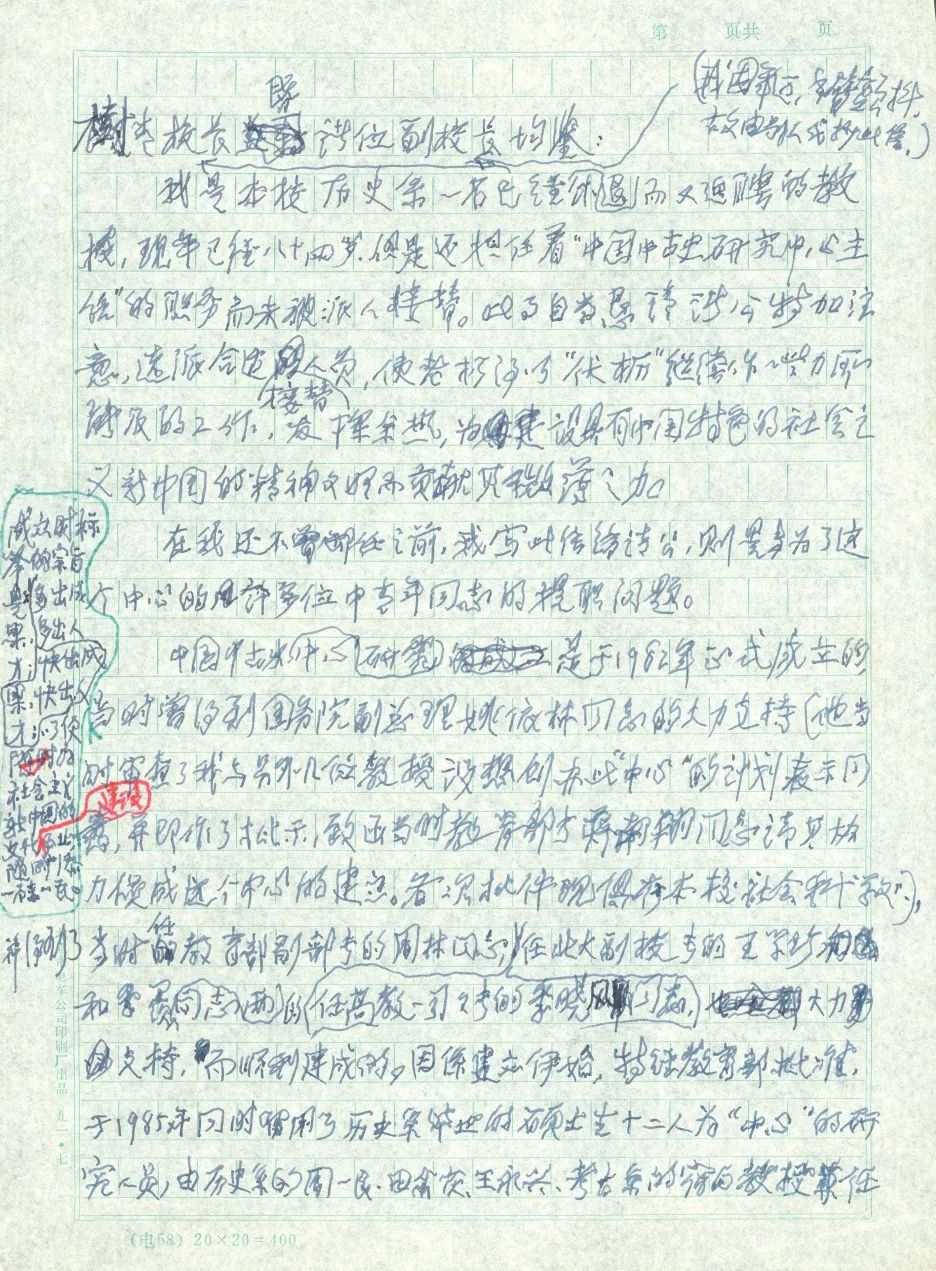 第 页共 页
(我因年迈,
故由别人代抄此信。)
树青校长暨诸位副校长均鉴:
我是本校历史系一名已经退而又返聘的教
授,现年已经八十四岁,但是还担任着“中国中古史研究中心主
任”的职务而未被派人接替。请诸公特加注
意,选派合适的人员接替,使老朽得以“伏枥”继续作一些力所
能及的工作,发挥余热,为建设具有中国特色的社会主
义新中国的精神文明而贡献其微薄之力。
在我还不曾卸任之前,我写此信给诸公,则是为了这
个中心的许多位中青年同志的提职问题。
中国中古史研究中心是于1982年正式成立的
当时曾得到国务院副总理姚依林同志的大力支持(他当
时审查了我与另外几位教授设想创办此“中心”的计划表示同
意,并即作了批示,致函当时教育部长蒋南翔同志请其大
力促成这个中心的建立。各次批件现俱存本校社会科学处),
并得到了当时任教育部副部长的周林同志,任北大副校长的王学珍
和季羡林同志,任高教一司司长的季啸风同志,大力
支持,而顺利建成的。因系建立伊始,特经教育部批准,
于1985年同时留用了历史系毕业的硕士生十二人为“中心”的研
究人员,由历史系的周一良、田余庆、王永兴、考古系的宿白教授兼任
成立时标
举的宗旨
是多出成
果,多出人
才;快出成
果,快出人
才;以便
随时为
社会主义
新中国的
建设
文化
(电58) 20×20=400
车公司印刷厂出品 九一·七